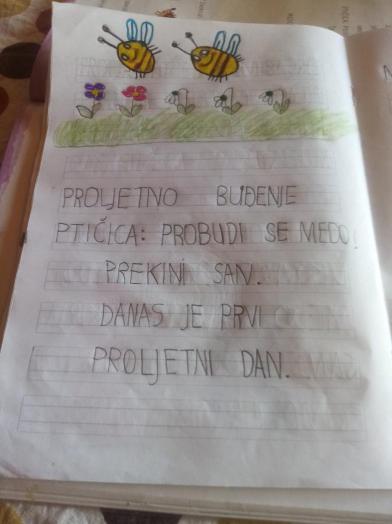 PROLJETNO BUĐENJE
PTIČICA: PROBUDI SE MEDO!
PREKINI SAN.
DANAS JE PRVI
PROLJETNI DAN.